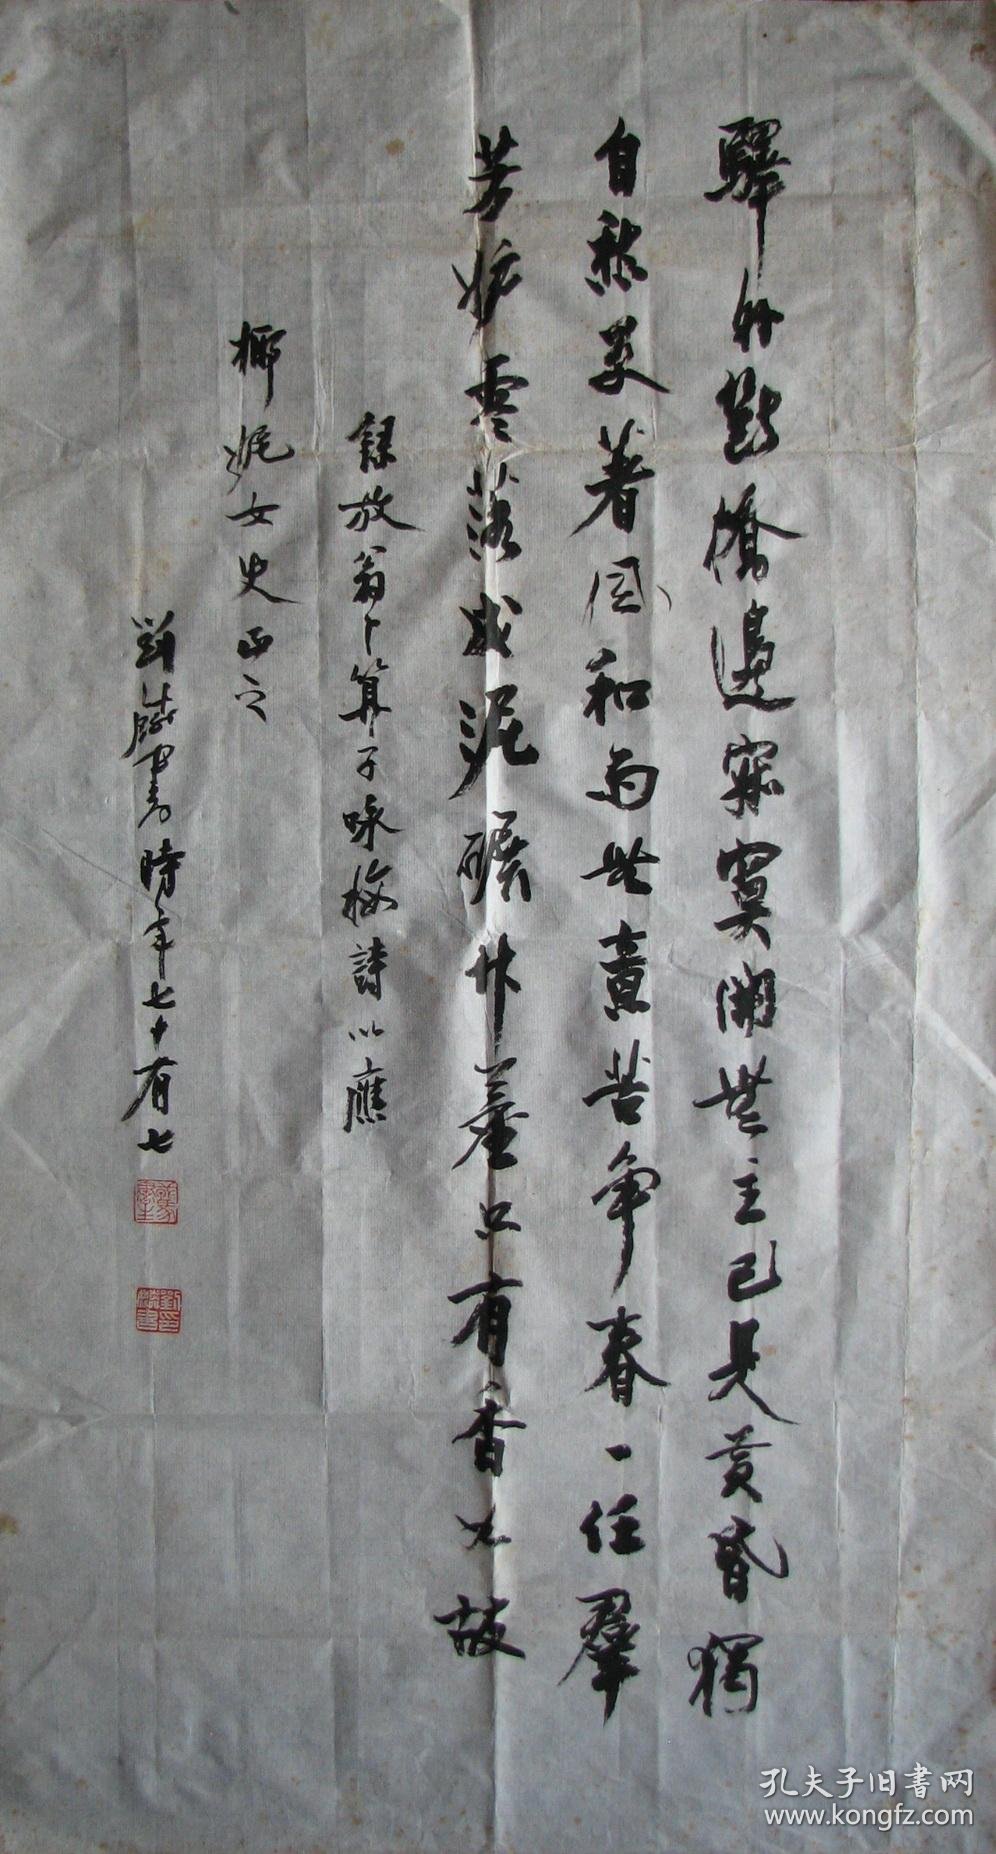 驛外斷橋邊寂寞開無主已是黃昏獨
自愁更著風和雨無意苦爭春一任羣
芳妒零落成泥碾作塵只有香如故
錄放翁卜算子咏梅詩以應
椰妮女史正之
劉麟書時年七十有七
劉印麟書
孔夫子旧书网
www.kongfz.com